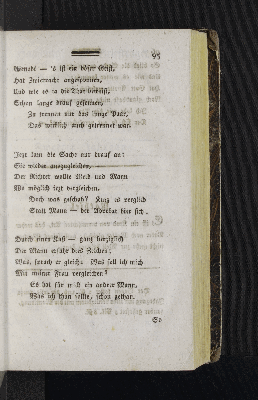 95
Gemeds — 's ist ein böser Geist,
Hat Zwietracht angesponnen,
Und wie es so die That beweist,
Schon lange drauf gesonnen,
Zu trennen nur das junge Paar,
Das wirklich auch getrennet war.
Jezt kam die Sache nur drauf an:
Sie wieder auszugleichen,
Der Richter wollte Weib und Mann
Wo möglich jezt vergleichen.
Doch was geschah? Kurz es verglich
Statt Mann — der Advokat sich.
Durch einen Kuß — ganz herzlich
Der Mann ersahe dies Zeichen:
Was, sprach er gleich: Was soll ich mich
Mit meiner Frau vergleichen?
Es hat für mich ein andrer Mann,
Was ich thun sollte, schon gethan.
So